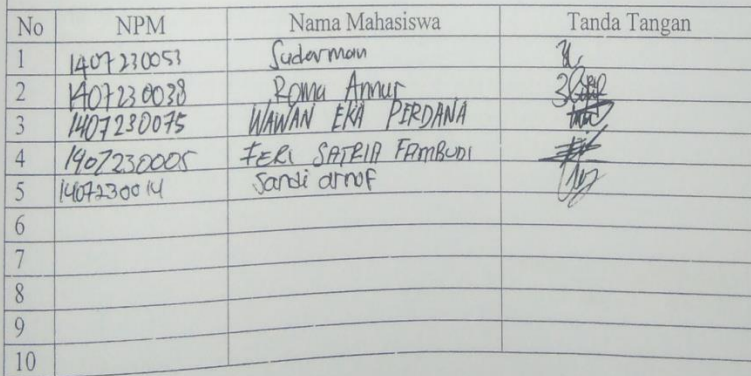 No NPM Nama Mahasiswa Tanda Tangan
1 1407230053 Sudarman
2 1407230038 Roma Annur
3 1407230075 WAWAN EKA PERDANA
4 1407230005 FERI SATRIA FAMBUDI
5 1407230014 Sandi arnof
6
7
8
9
10